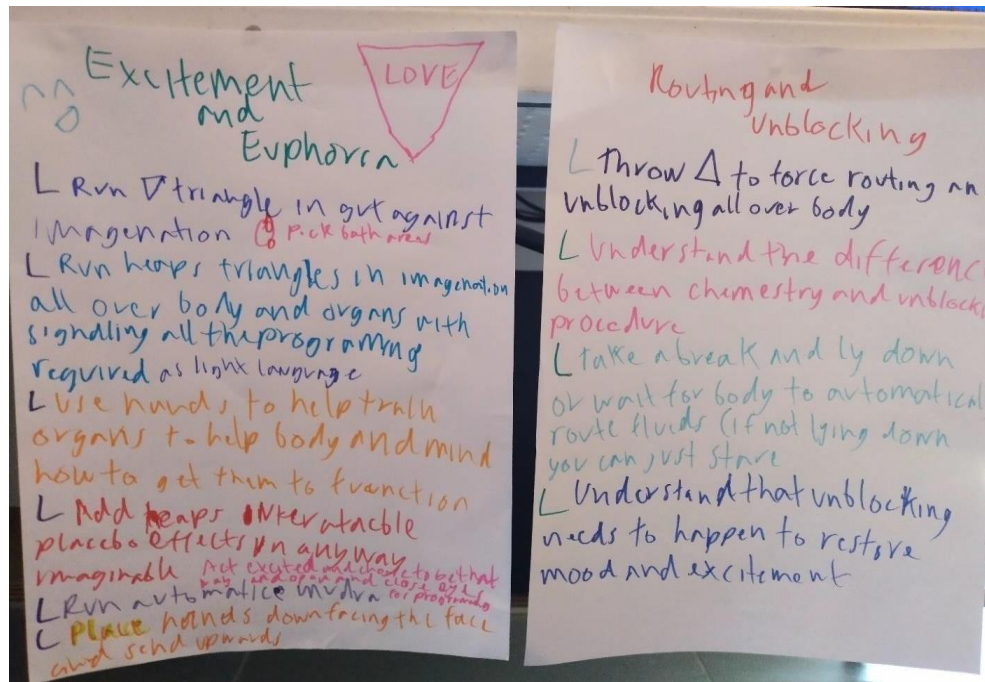 Excitement
and
Euphoria
LOVE
L Run ▽ triangle in gut against
imagenation pick both areas
L Run heaps triangles in imagenation
all over body and organs with
signalling all the programing
required as light language
L Use hands to help train
organs to help body and mind
how to get them to function
L Add heaps
placebo effects in any way
imaginable Act excited and choose to be that
way and open and close eyes
L Run automatice mudra for programing
L Place hands down facing the face
and send upwards
Routing and
Unblocking
L Throw △ to force routing an
unblocking all over body
L Understand the differenc
between chemestry and unblocki
procedure
L take a break and ly down
or wait for body to automatical
route fluids (if not lying down
you can just stare
L Understand that unblocking
needs to happen to restore
mood and excitement